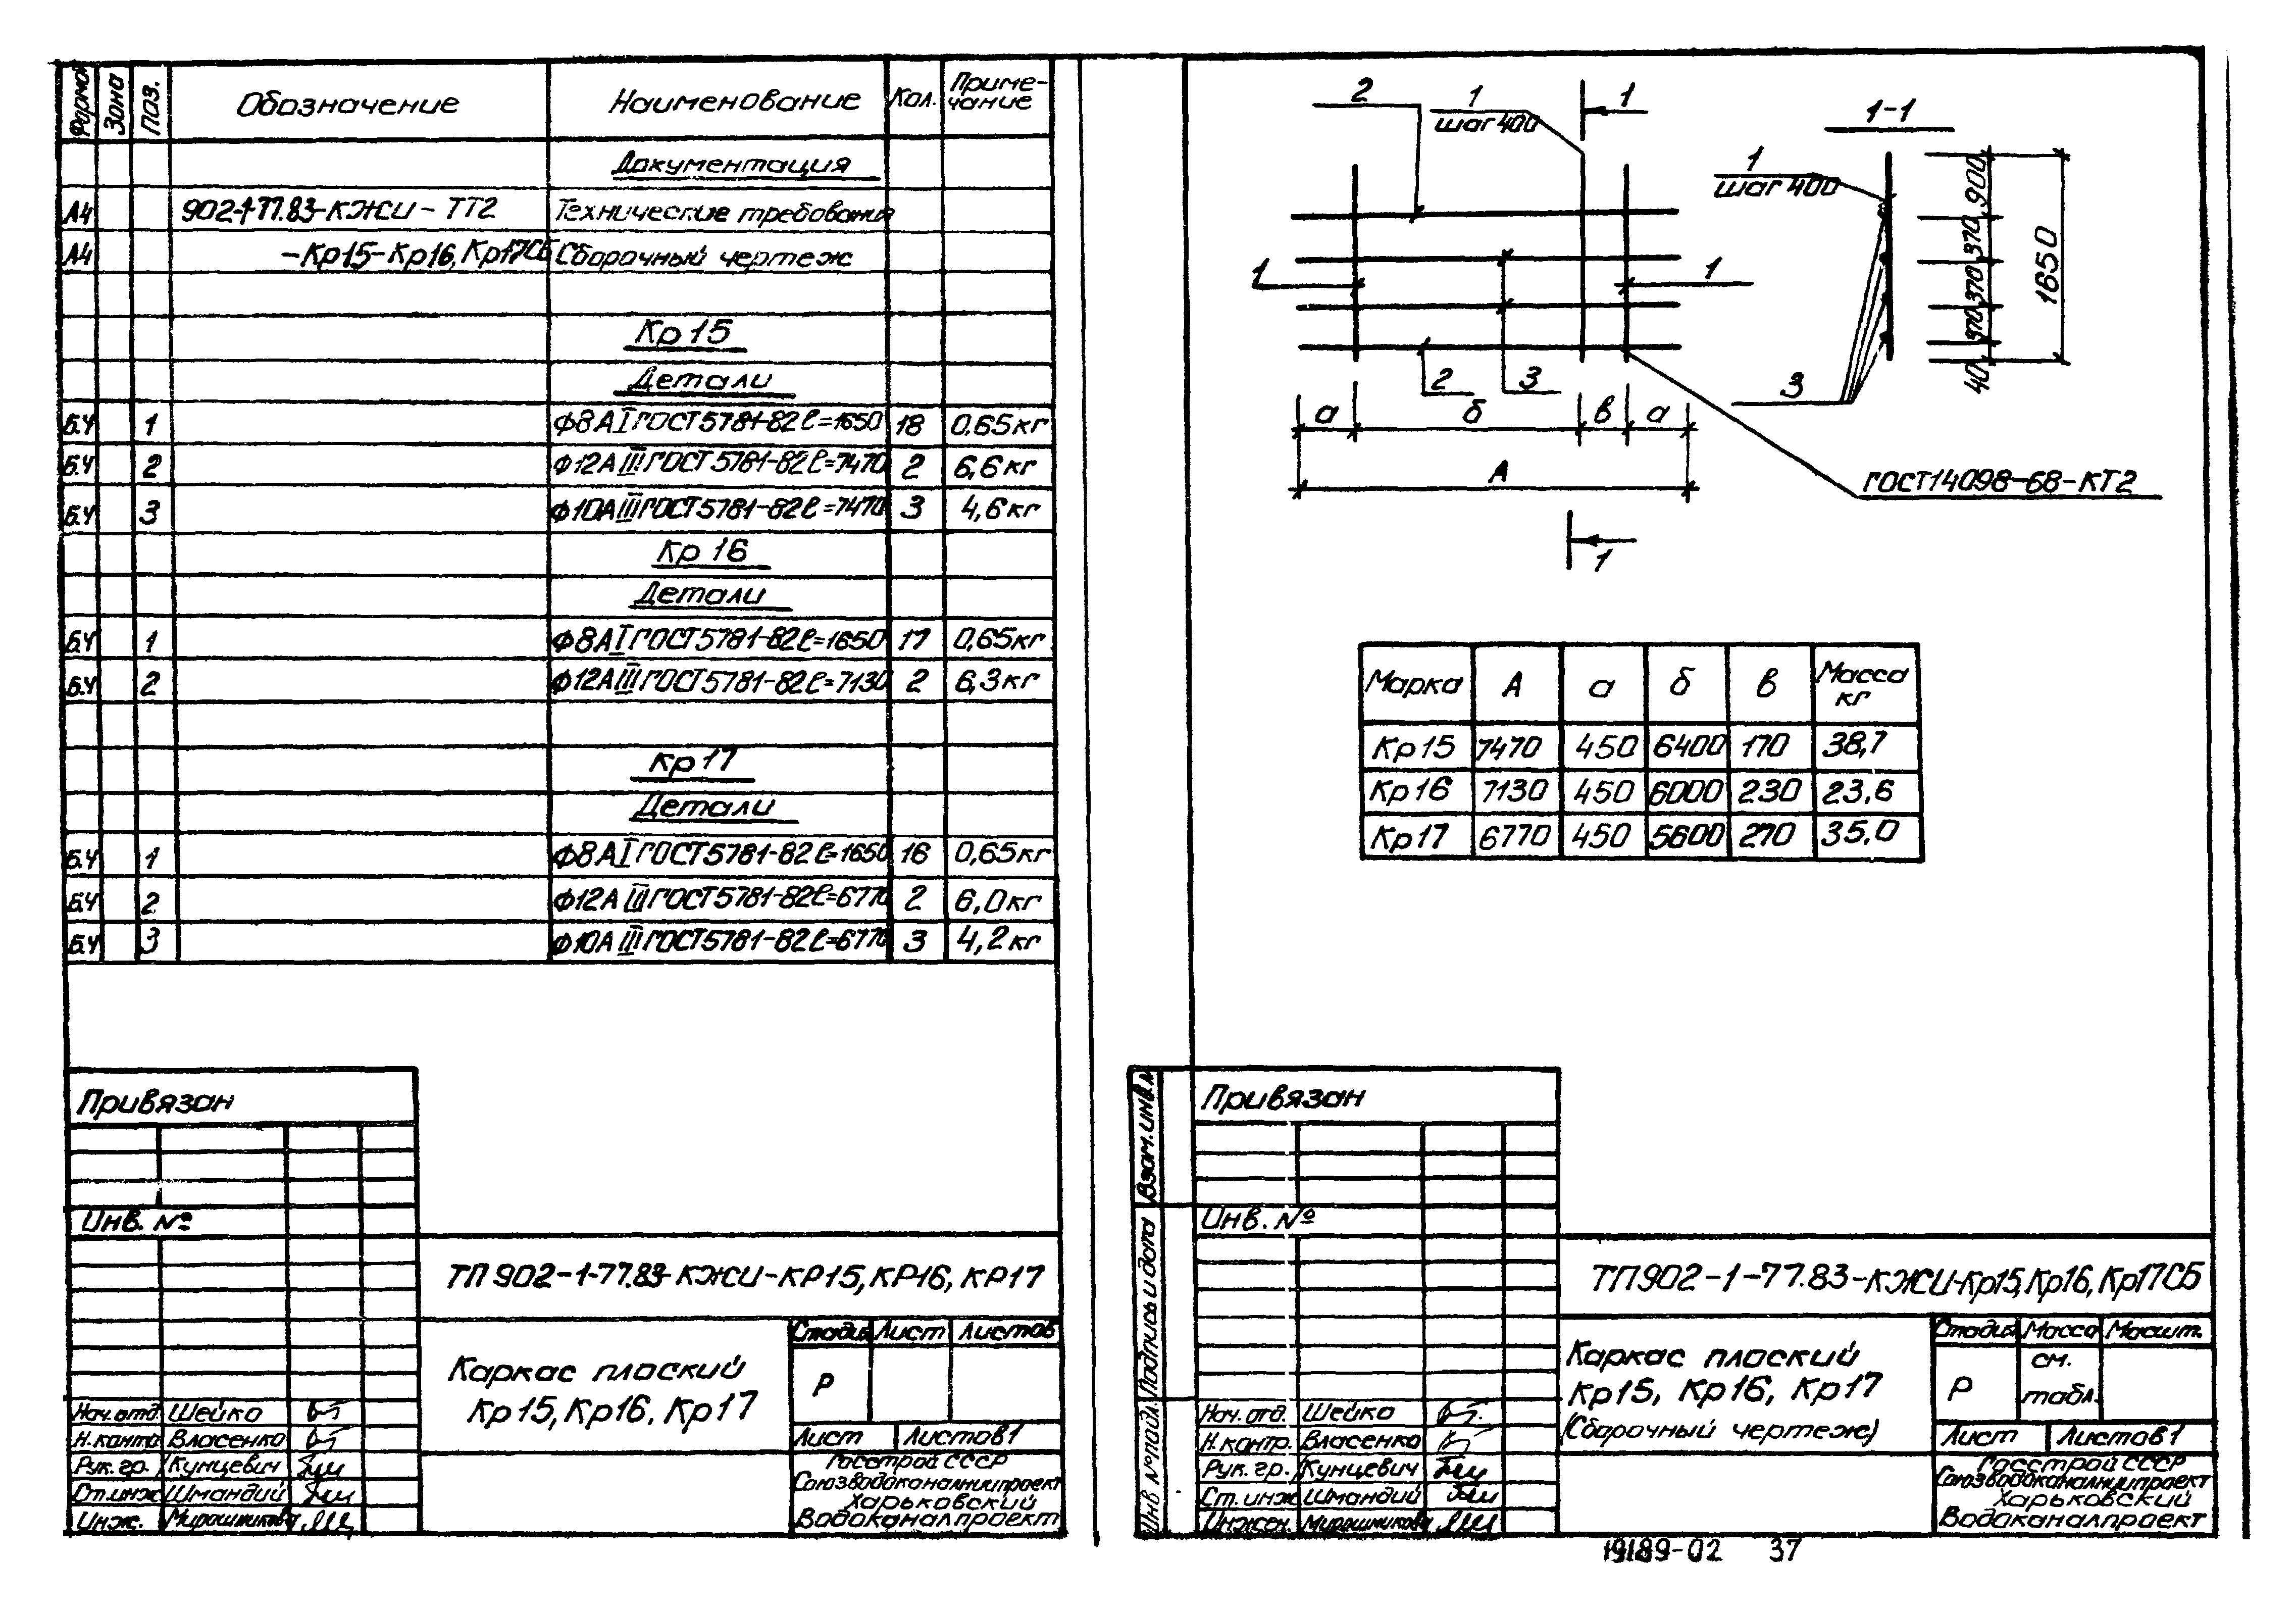 Формат Зона Поз. Обозначение Наименование Кол. Приме-
чание
Документация
А4 902-1-77.83-КЖИ-ТТ2 Технические требования
А4 -Кр15-Кр16, Кр17СБ Сборочный чертеж
Кр15
Детали
Б.Ч 1 Ф8АI ГОСТ5781-82 ℓ=1650 18 0,65кг
Б.Ч 2 Ф12АIII ГОСТ5781-82 ℓ=7470 2 6,6кг
Б.Ч 3 Ф10АIII ГОСТ5781-82 ℓ=7470 3 4,6кг
Кр16
Детали
Б.Ч 1 Ф8АI ГОСТ5781-82 ℓ=1650 17 0,65кг
Б.Ч 2 Ф12АIII ГОСТ5781-82 ℓ=7130 2 6,3кг
Кр17
Детали
Б.Ч 1 Ф8АI ГОСТ5781-82 ℓ=1650 16 0,65кг
Б.Ч 2 Ф12АIII ГОСТ5781-82 ℓ=6770 2 6,0кг
Б.Ч 3 Ф10АIII ГОСТ5781-82 ℓ=6770 3 4,2кг
Привязан
Инв. №
ТП 902-1-77.83-КЖИ-КР15, КР16, КР17
Каркас плоский
Кр15, Кр16, Кр17
Стадия Лист Листов
Р
Лист Листов 1
Нач.отд. Шейко
Н.контр Власенко
Рук.гр. Кунцевич
Ст.инж Шмандий
Инж. Мирошникова
Госстрой СССР
Союзводоканалниипроект
Харьковский
Водоканалпроект
2
1
шаг 400
1
1-1
1
шаг 400
1
1
2
3
3
900
370
370
370
40
1650
а б в а
А
ГОСТ14098-68-КТ2
1
Марка А а б в Масса
кг
Кр15 7470 450 6400 170 38,7
Кр16 7130 450 6000 230 23,6
Кр17 6770 450 5600 270 35,0
Взам.инв.№
Подпись и дата
Инв № подл.
Привязан
Инв. №
ТП902-1-77.83-КЖИ-Кр15, Кр16, Кр17СБ
Каркас плоский
Кр15, Кр16, Кр17
(Сборочный чертеж)
Стадия Масса Масшт.
Р см.
табл.
Лист Листов 1
Нач.отд. Шейко
Н.контр. Власенко
Рук.гр. Кунцевич
Ст.инж Шмандий
Инжен. Мирошникова
Госстрой СССР
Союзводоканалниипроект
Харьковский
Водоканалпроект
19189-02 37